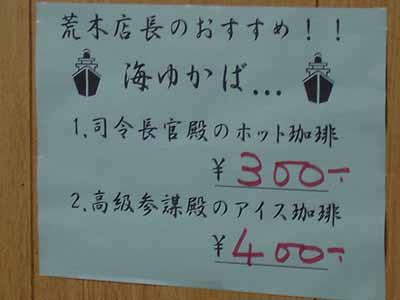 荒木店長のおすすめ!!
海ゆかば...
1.司令長官殿のホット珈琲
¥300-
2.高級参謀殿のアイス珈琲
¥400-